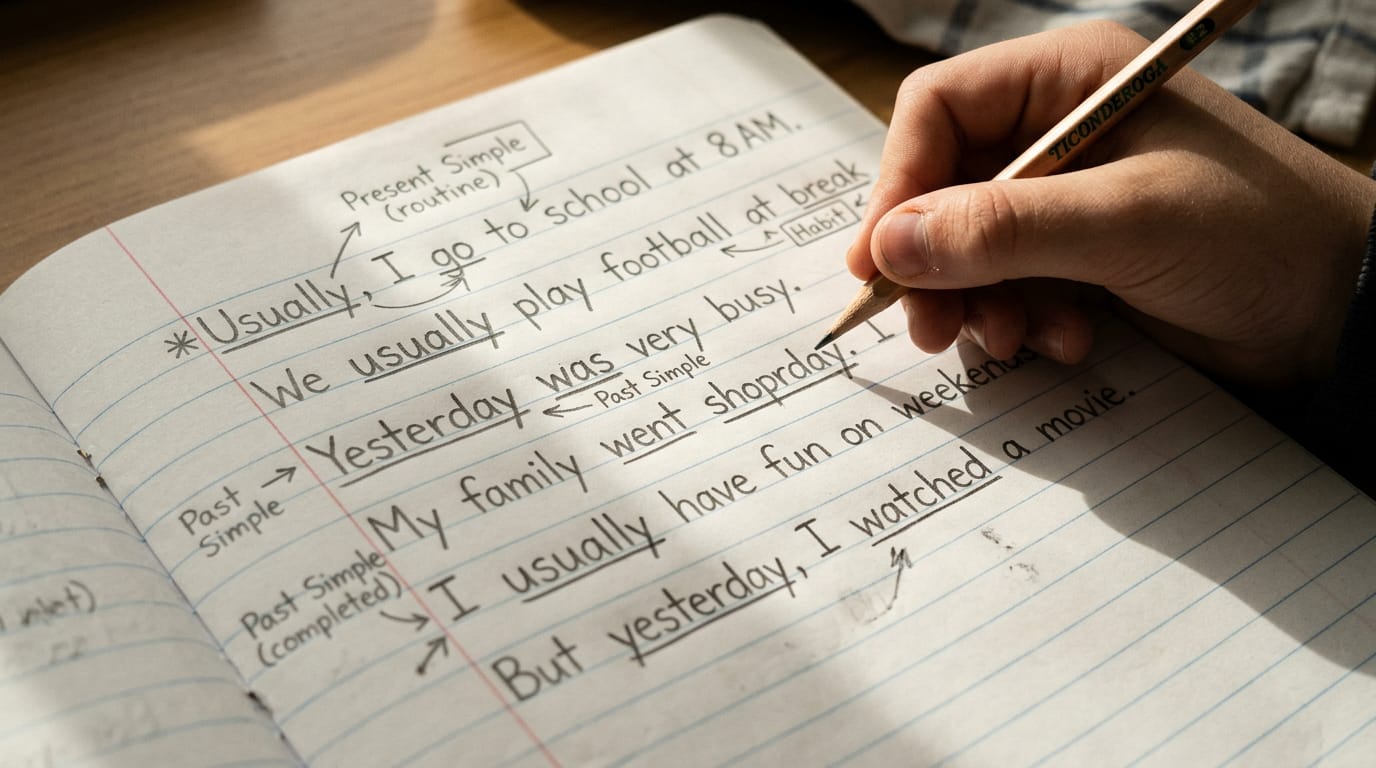 Present Simple
(routine)
* Usually, I go to school at 8 AM.
We usually play football at break
Habit
Yesterday was very busy.
Past Simple
Past
Simple
My family went shoprday. I
Past Simple
(completed)
I usually have fun on weekends
But yesterday, I watched a movie.
TICONDEROGA